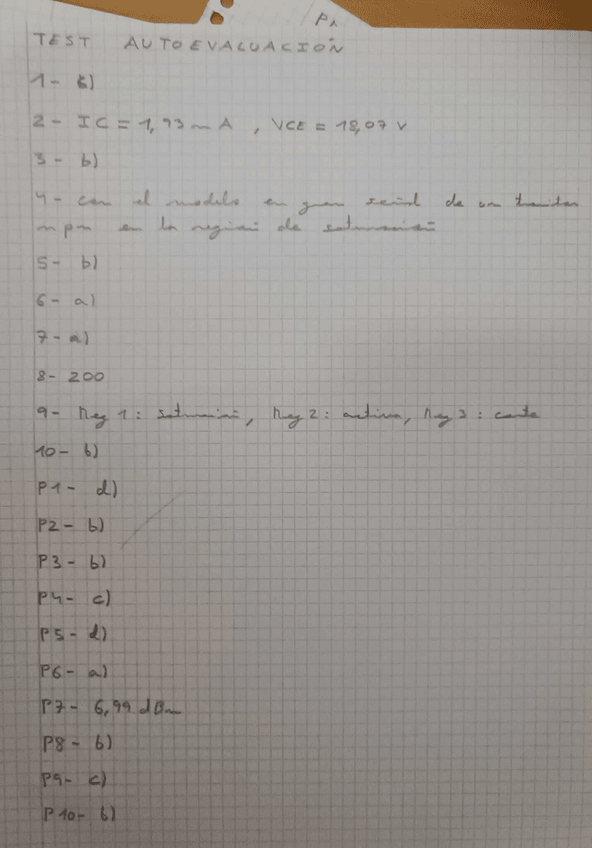 P1
TEST AUTOEVALUACIÓN
1- b)
2- IC = 1,93 mA , VCE = 18,07 V
3- b)
4- con el modelo en gran señal de un transistor
npn en la región de saturación
5- b)
6- a)
7- a)
8- 200
9- Reg 1: saturación, Reg 2: activa, Reg 3: corte
10- b)
P1- d)
P2- b)
P3- b)
P4- c)
P5- d)
P6- a)
P7- 6,99 dBm
P8- b)
P9- c)
P10- b)